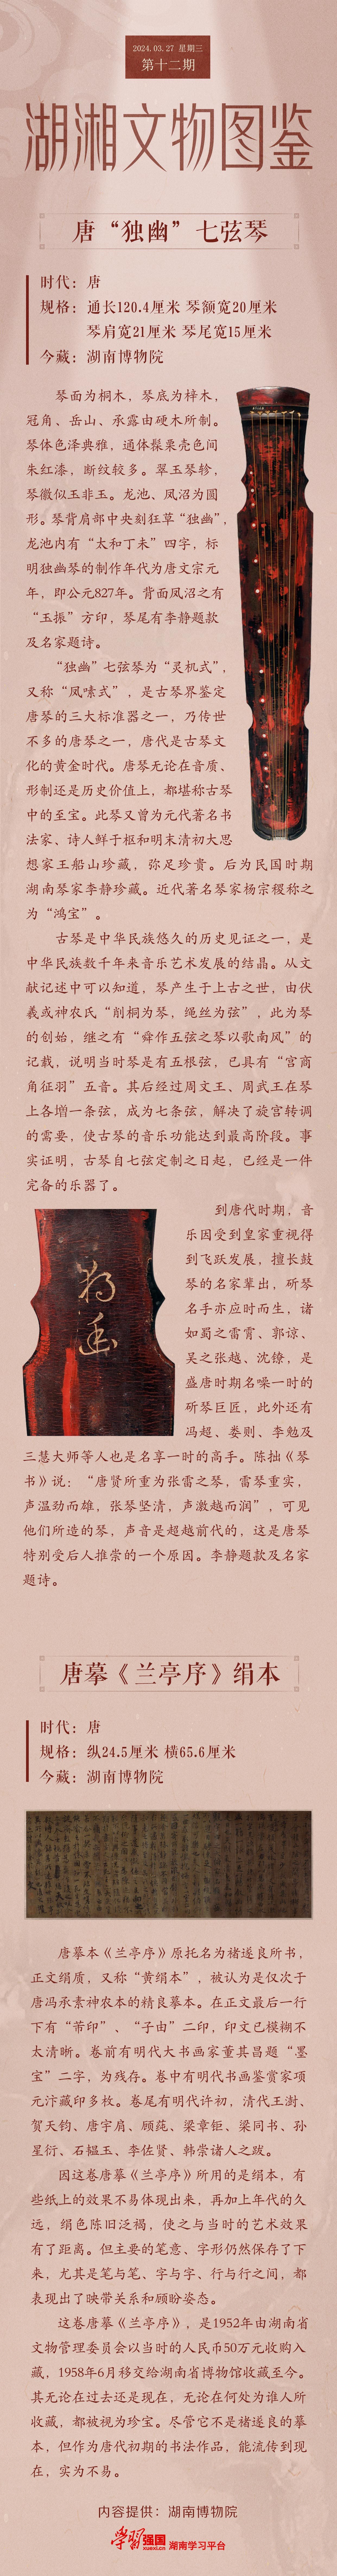 2024.03.27 星期三
第十二期
湖湘文物图鉴
唐“独幽”七弦琴
时代：唐
规格：通长120.4厘米 琴额宽20厘米
琴肩宽21厘米 琴尾宽15厘米
今藏：湖南博物院
琴面为桐木，琴底为梓木，
冠角、岳山、承露由硬木所制。
琴体色泽典雅，通体髹栗壳色间
朱红漆，断纹较多。翠玉琴轸，
琴徽似玉非玉。龙池、凤沼为圆
形。琴背肩部中央刻狂草“独幽”，
龙池内有“太和丁未”四字，标
明独幽琴的制作年代为唐文宗元
年，即公元827年。背面凤沼之有
“玉振”方印，琴尾有李静题款
及名家题诗。
“独幽”七弦琴为“灵机式”，
又称“凤嗉式”，是古琴界鉴定
唐琴的三大标准器之一，乃传世
不多的唐琴之一，唐代是古琴文
化的黄金时代。唐琴无论在音质、
形制还是历史价值上，都堪称古琴
中的至宝。此琴又曾为元代著名书
法家、诗人鲜于枢和明末清初大思
想家王船山珍藏，弥足珍贵。后为民国时期
湖南琴家李静珍藏。近代著名琴家杨宗稷称之
为“鸿宝”。
古琴是中华民族悠久的历史见证之一，是
中华民族数千年来音乐艺术发展的结晶。从文
献记述中可以知道，琴产生于上古之世，由伏
羲或神农氏“削桐为琴，绳丝为弦”，此为琴
的创始，继之有“舜作五弦之琴以歌南风”的
记载，说明当时琴是有五根弦，已具有“宫商
角征羽”五音。其后经过周文王、周武王在琴
上各增一条弦，成为七条弦，解决了旋宫转调
的需要，使古琴的音乐功能达到最高阶段。事
实证明，古琴自七弦定制之日起，已经是一件
完备的乐器了。
到唐代时期，音
乐因受到皇家重视得
到飞跃发展，擅长鼓
琴的名家辈出，斫琴
名手亦应时而生，诸
如蜀之雷霄、郭谅、
吴之张越、沈镣，是
盛唐时期名噪一时的
斫琴巨匠，此外还有
冯超、娄则、李勉及
三慧大师等人也是名享一时的高手。陈拙《琴
书》说：“唐贤所重为张雷之琴，雷琴重实，
声温劲而雄，张琴坚清，声激越而润”，可见
他们所造的琴，声音是超越前代的，这是唐琴
特别受后人推崇的一个原因。李静题款及名家
题诗。
独幽
唐摹《兰亭序》绢本
时代：唐
规格：纵24.5厘米 横65.6厘米
今藏：湖南博物院
唐摹本《兰亭序》原托名为褚遂良所书，
正文绢质，又称“黄绢本”，被认为是仅次于
唐冯承素神农本的精良摹本。在正文最后一行
下有“芾印”、“子由”二印，印文已模糊不
太清晰。卷前有明代大书画家董其昌题“墨
宝”二字，为残存。卷中有明代书画鉴赏家项
元汴藏印多枚。卷尾有明代许初，清代王澍、
贺天钧、唐宇肩、顾莼、梁章钜、梁同书、孙
星衍、石韫玉、李佐贤、韩崇诸人之跋。
因这卷唐摹《兰亭序》所用的是绢本，有
些纸上的效果不易体现出来，再加上年代的久
远，绢色陈旧泛褐，使之与当时的艺术效果
有了距离。但主要的笔意、字形仍然保存了下
来，尤其是笔与笔、字与字、行与行之间，都
表现出了映带关系和顾盼姿态。
这卷唐摹《兰亭序》，是1952年由湖南省
文物管理委员会以当时的人民币50万元收购入
藏，1958年6月移交给湖南省博物馆收藏至今。
其无论在过去还是现在，无论在何处为谁人所
收藏，都被视为珍宝。尽管它不是褚遂良的摹
本，但作为唐代初期的书法作品，能流传到现
在，实为不易。
内容提供：湖南博物院
学习强国 xuexi.cn 湖南学习平台